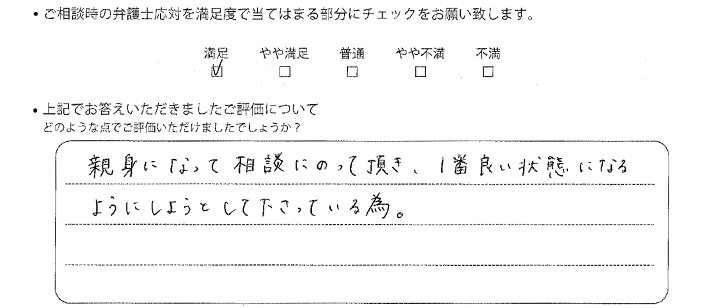 ・ご相談時の弁護士応対を満足度で当てはまる部分にチェックをお願い致します。
満足 やや満足 普通 やや不満 不満
☑ □ □ □ □
・上記でお答えいただきましたご評価について
どのような点でご評価いただけましたでしょうか？
親身になって相談にのって頂き、1番良い状態になる
ようにしようとして下さっている為。